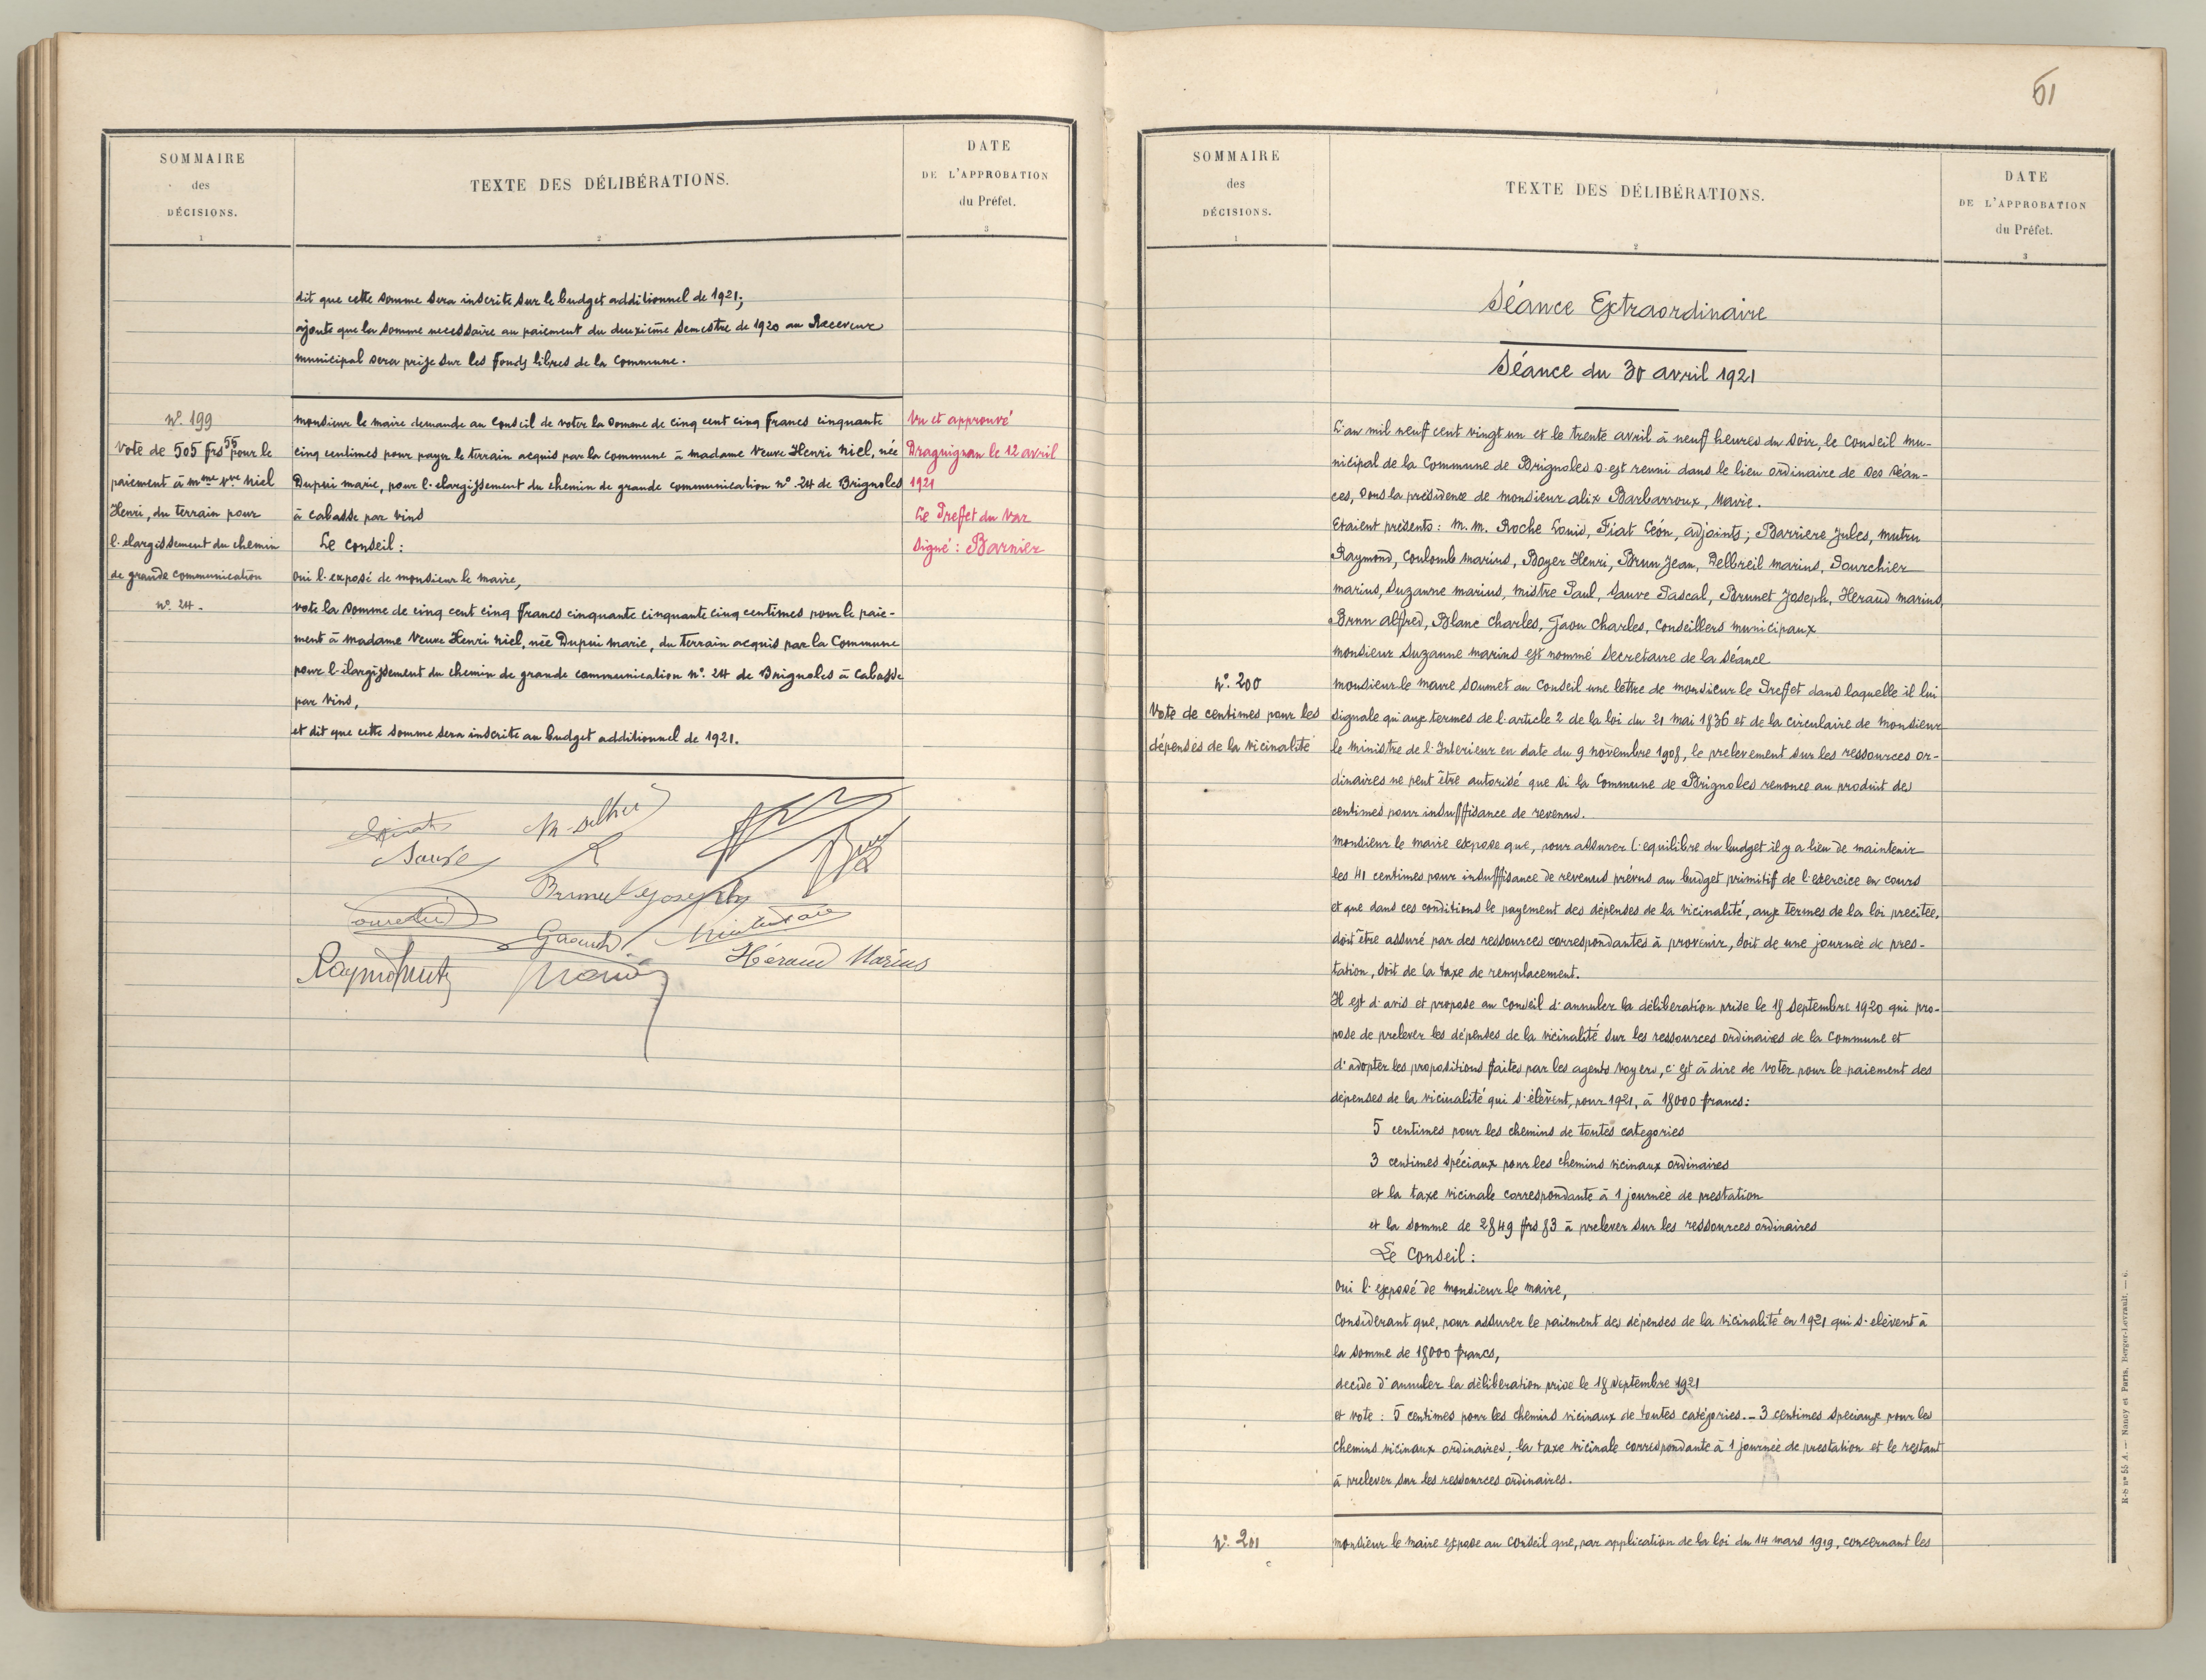 SOMMAIRE
des
DÉCISIONS.
1
TEXTE DES DÉLIBÉRATIONS.
2
DATE
DE L'APPROBATION
du Préfet.
3
dit que cette somme sera inscrite sur le budget additionnel de 1921;
ajoute que la somme necessaire au paiement du deuxième semestre de 1920 au Receveur
municipal sera prise sur les fonds libres de la Commune.
No. 199
Vote de 505 frs 55 pour le
paiement à Mme Vve Niel
Henri, du terrain pour
l'elargissement du chemin
de grande communication
No. 24-
Monsieur le maire demande au Conseil de voter la somme de cinq cent cinq francs cinquante
cinq centimes pour payer le terrain acquis par la commune à madame Veuve Henri Niel, née
Dupui marie, pour l'elargissement du chemin de grande communication no. 24 de Brignoles
à Cabasse par Vins
Le Conseil:
oui l'exposé de monsieur le maire,
vote la somme de cinq cent cinq francs cinquante cinquante cinq centimes pour le paie-
ment à madame Veuve Henri Niel, née Dupui marie, du terrain acquis par la Commune
pour l'élargissement du chemin de grande communication no. 24 de Brignoles à Cabasse
par Vins,
et dit que cette somme sera inscrite au budget additionnel de 1921.
Vu et approuvé
Draguignan le 12 avril
1921
Le Preffet du Var
Signé: Barnier
Sauve
Brunet Joseph
Héraud Marius
61
SOMMAIRE
des
DÉCISIONS.
1
TEXTE DES DÉLIBÉRATIONS.
2
DATE
DE L'APPROBATION
du Préfet.
3
Séance Extraordinaire
Séance du 30 avril 1921
L'an mil neuf cent vingt un et le trente avril à neuf heures du soir, le Conseil mu-
nicipal de la Commune de Brignoles s'est reuni dans le lieu ordinaire de ses séan-
ces, sous la présidence de monsieur alix Barbarroux, Maire.
Etaient présents: M.M. Roche Louis, Fiat Léon, adjoints; Barriere Jules, Mutru
Raymond, Coulomb Marius, Boyer Henri, Brun Jean, Delbreil Marius, Fourchier
marius, Suzanne marius, Mistre Paul, Sauve Pascal, Brunet Joseph, Heraud marius,
Brun Alfred, Blanc Charles, Gaou Charles, Conseillers municipaux
monsieur Suzanne marius est nommé Secretaire de la séance
No. 200
Vote de centimes pour les
dépenses de la vicinalité
monsieur le maire soumet au Conseil une lettre de monsieur le Preffet dans laquelle il lui
signale qu'aux termes de l'article 2 de la loi du 21 mai 1836 et de la circulaire de monsieur
le ministre de l'Interieur en date du 9 novembre 1908, le prelevement sur les ressources or-
dinaires ne peut être autorisé que si la Commune de Brignoles renonce au produit des
centimes pour insuffisance de revenus.
Monsieur le maire expose que, pour assurer l'equilibre du budget il y a lieu de maintenir
les 41 centimes pour insuffisance de revenus prévus au budget primitif de l'exercice en cours
et que dans ces conditions le payement des dépenses de la vicinalité, aux termes de la loi precitée,
doit être assuré par des ressources correspondantes à provenir, soit de une journeé de pres-
tation, soit de la taxe de remplacement.
Il est d'avis et propose au Conseil d'annuler la déliberation prise le 18 septembre 1920 qui pro-
pose de prelever les dépenses de la vicinalité sur les ressources ordinaires de la Commune et
d'adopter les propositions faites par les agents voyers, c'est à dire de voter pour le paiement des
depenses de la vicinalité qui s'élèvent, pour 1921, à 18000 francs:
5 centimes pour les chemins de toutes categories
3 centimes spéciaux pour les chemins vicinaux ordinaires
et la taxe vicinale correspondante à 1 journeé de prestation
et la somme de 2849 frs 83 à prelever sur les ressources ordinaires
Le Conseil:
oui l'exposé de monsieur le maire,
Considerant que, pour assurer le paiement des dépenses de la vicinalité en 1921 qui s'elèvent à
la somme de 18000 francs,
decide d'annuler la déliberation prise le 18 septembre 1921
et vote: 5 centimes pour les chemins vicinaux de toutes catégories.- 3 centimes speciaux pour les
chemins vicinaux ordinaires; la taxe vicinale correspondante à 1 journeé de prestation et le restant
à prelever sur les ressources ordinaires.
No. 201
monsieur le maire expose au conseil que, par application de la loi du 14 mars 1919, concernant les
R-S no 55 A. — Nancy et Paris, Berger-Levrault. — 6.